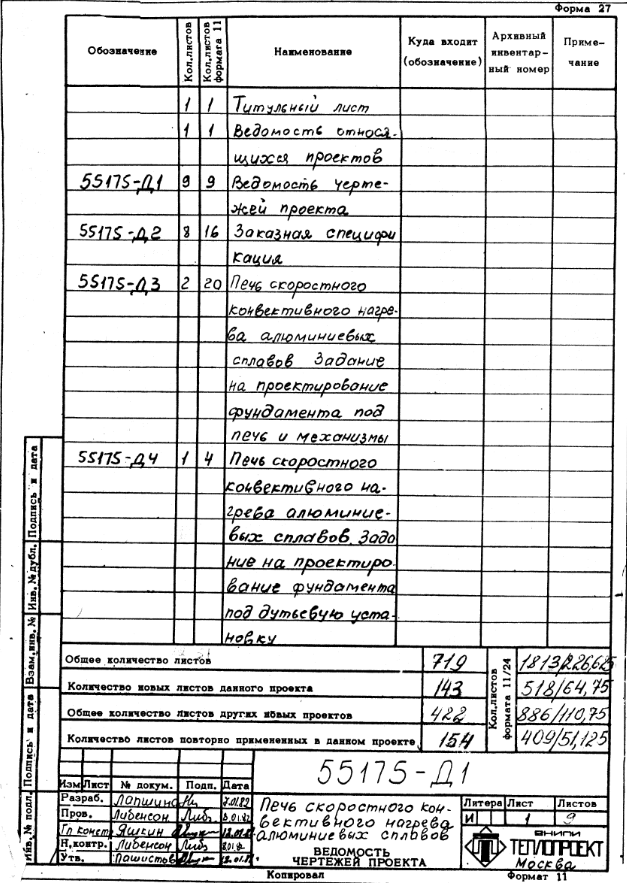 Форма 27
Обозначение Кол.листов Кол.листов формата 11 Наименование Куда входит (обозначение) Архивный инвентар-ный номер Приме-чание
1 1 Титульный лист
1 1 Ведомость относя-
щихся проектов
55175-Д1 9 9 Ведомость черте-
жей проекта
55175-Д2 8 16 Заказная специфи
кация
55175-Д3 2 20 Печь скоростного
конвективного нагре-
ва алюминиевых
сплавов Задание
на проектирование
фундамента под
печь и механизмы
55175-Д4 1 4 Печь скоростного
конвективного на-
грева алюминие-
вых сплавов Зада
ние на проектиро
вание фундамента
под дутьевую уста-
новку
Общее количество листов 719 Кол.листов формата 11/24 1813/226,625
Количество новых листов данного проекта 143 518/64,75
Общее количество листов других новых проектов 422 886/110,75
Количество листов повторно примененных в данном проекте 154 409/51,125
55175-Д1
Изм Лист № докум. Подп. Дата
Разраб. Лапшина
Пров. Либенсон
Гл конст Яшкин
Н.контр. Либенсон
Утв. Пашистов
Печь скоростного кон-
вективного нагрева
алюминиевых сплавов
ВЕДОМОСТЬ
ЧЕРТЕЖЕЙ ПРОЕКТА
Литера Лист Листов
И 1 9
ВНИПИ
ТЕПЛОПРОЕКТ
Москва
Копировал Формат 11
Инв.№ подл. Подпись и дата Взам.инв.№ Инв.№ дубл. Подпись и дата